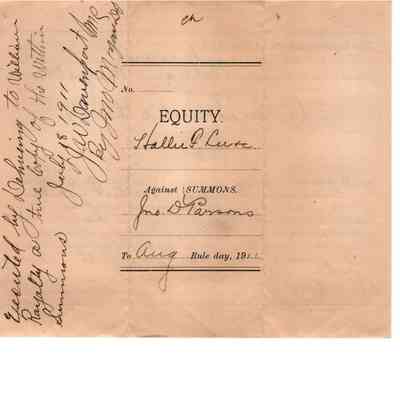 ch
No.
EQUITY.
Hallie P. Luse
Against } SUMMONS.
Jno. D. Parsons
To Aug Rule day, 191
Executed by Delivering to William
Royalty a true copy of the Within
Summons
July 18 1911
J W Davenport
By Jno